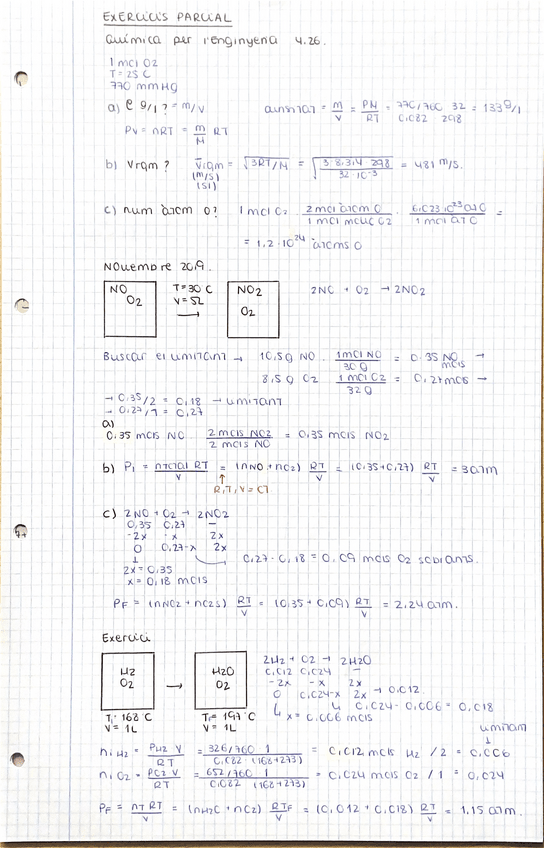 EXERCICIS PARCIAL
Química per l'enginyeria 4.26.
1 mol O2
T = 25 C
770 mmHg
a) ρ g/l? = m/V densitat = m/V = PM/RT = 770/760 32 / 0,082 298 = 1,33 g/l
PV = nRT = m/M RT
b) Vrqm? Vrqm (m/s) (SI) = √3RT/M = √3·8,314·298/32·10⁻³ = 481 m/s.
c) num àtom O? 1 mol O2 · 2 mol àtom O/1 mol molec O2 · 6,023·10²³ at O/1 mol at O =
= 1,2·10²⁴ àtoms O
Novembre 2019.
NO O2 T = 30 C V = 5L → NO2 O2 2NO + O2 → 2NO2
Buscar el limitant → 10,5g NO · 1 mol NO/30g = 0.35 NO mols →
8,5g O2 1 mol O2/32g = 0,27 mols →
→ 0,35/2 = 0,18 → limitant
→ 0,27/1 = 0,27
a)
0,35 mols NO 2 mols NO2/2 mols NO = 0,35 mols NO2
b) Pi = ntotal RT/V = (nNO + nO2) RT/V = (0,35 + 0,27) RT/V = 3 atm
↑
R,T,V = CT
c) 2NO + O2 → 2NO2
0,35 0,27 –
-2x -x 2x
0 0,27-x 2x
0,27 - 0,18 = 0,09 mols O2 sobrants.
2x = 0,35
x = 0,18 mols
PF = (nNO2 + nO2s) RT/V = (0,35 + 0,09) RT/V = 2,24 atm.
Exercici
H2 O2 → H2O O2
2H2 + O2 → 2H2O
0,012 0,024 –
-2x -x 2x
0 0,024-x 2x → 0,012.
0,024 - 0,006 = 0,018
x = 0,006 mols
Ti: 168 C
V = 1L
Tf = 197 C
V = 1L
limitant
↓
ni H2 = PH2 V/RT = 326/760 1 / 0,082 (168+273) = 0,012 mols H2 /2 = 0,006
ni O2 = PO2 V/RT = 652/760 1 / 0,082 (168+273) = 0,024 mols O2 /1 = 0,024
PF = nT RT/V = (nH2O + nO2) RTF/V = (0,012 + 0,018) RT/V = 1,15 atm.